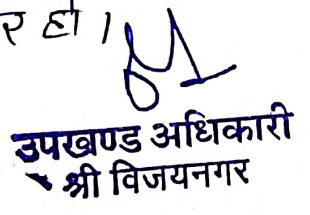 र हो।
उपखण्ड अधिकारी
श्री विजयनगर